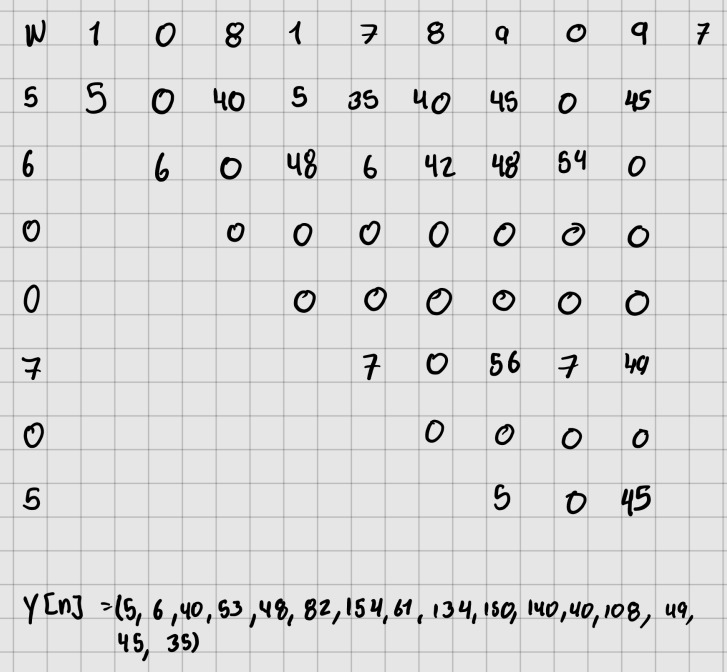 W 1 0 8 1 7 8 9 0 9 7
5 5 0 40 5 35 40 45 0 45
6 6 0 48 6 42 48 54 0
0 0 0 0 0 0 0 0
0 0 0 0 0 0 0
7 7 0 56 7 49
0 0 0 0 0
5 5 0 45
Y[n] =(5, 6, 40, 53, 48, 82, 154, 61, 134, 150, 140, 40, 108, 49,
45, 35)